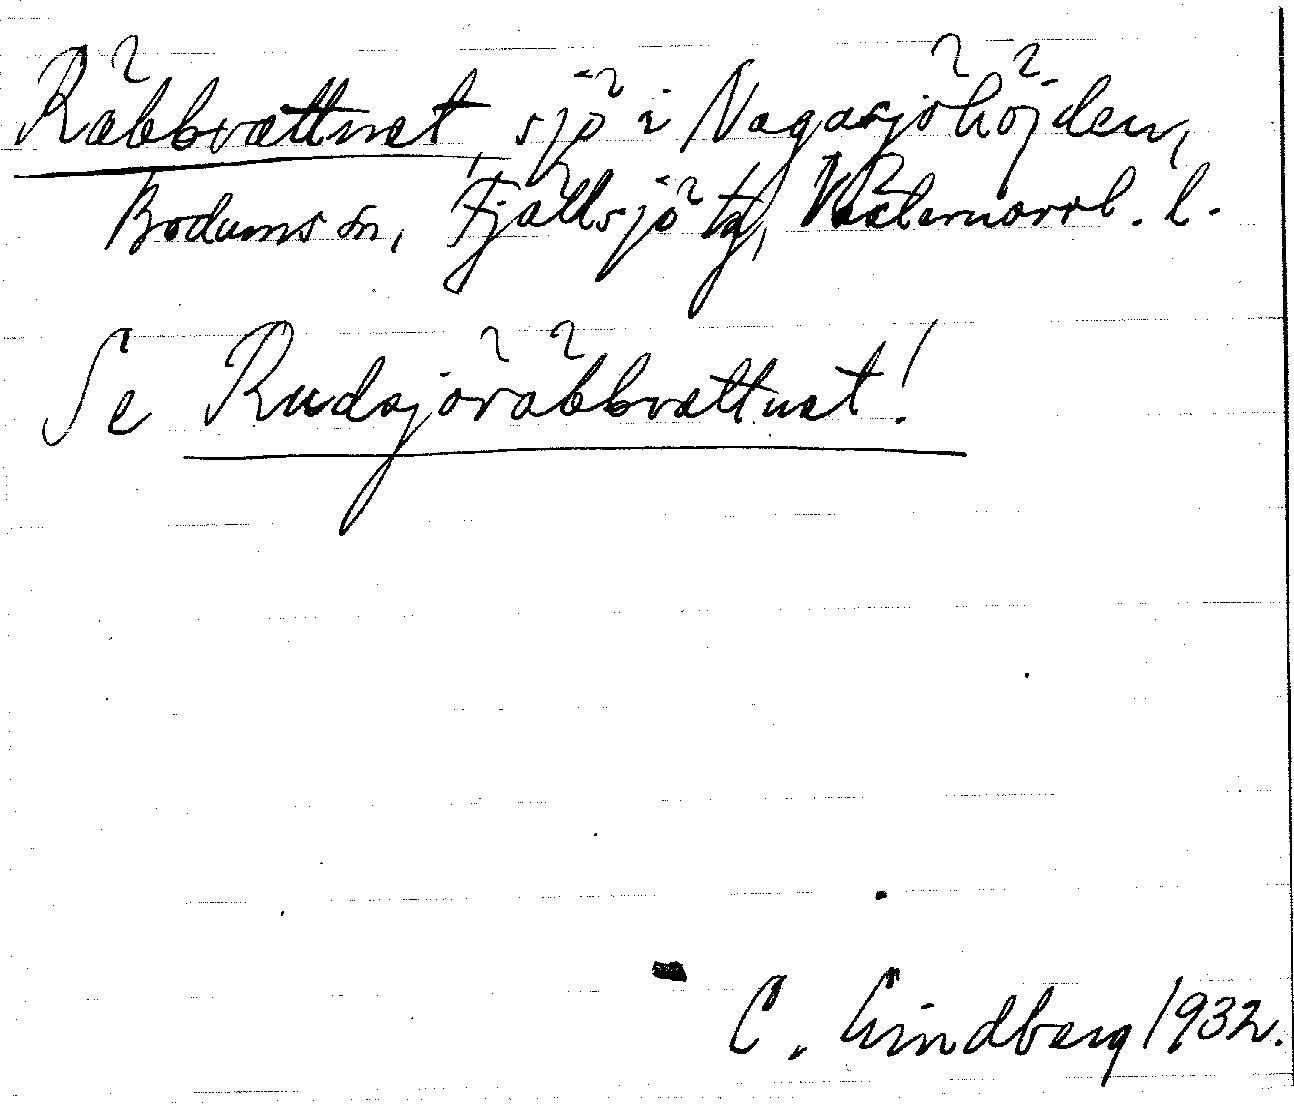 Räbbvattnet, sjö i Nagasjöhöjden,
Bodums sn, Fjällsjö tg, Västernorrl. l.
Se Rudsjöräbbvattnet!
C. Lindberg 1932.